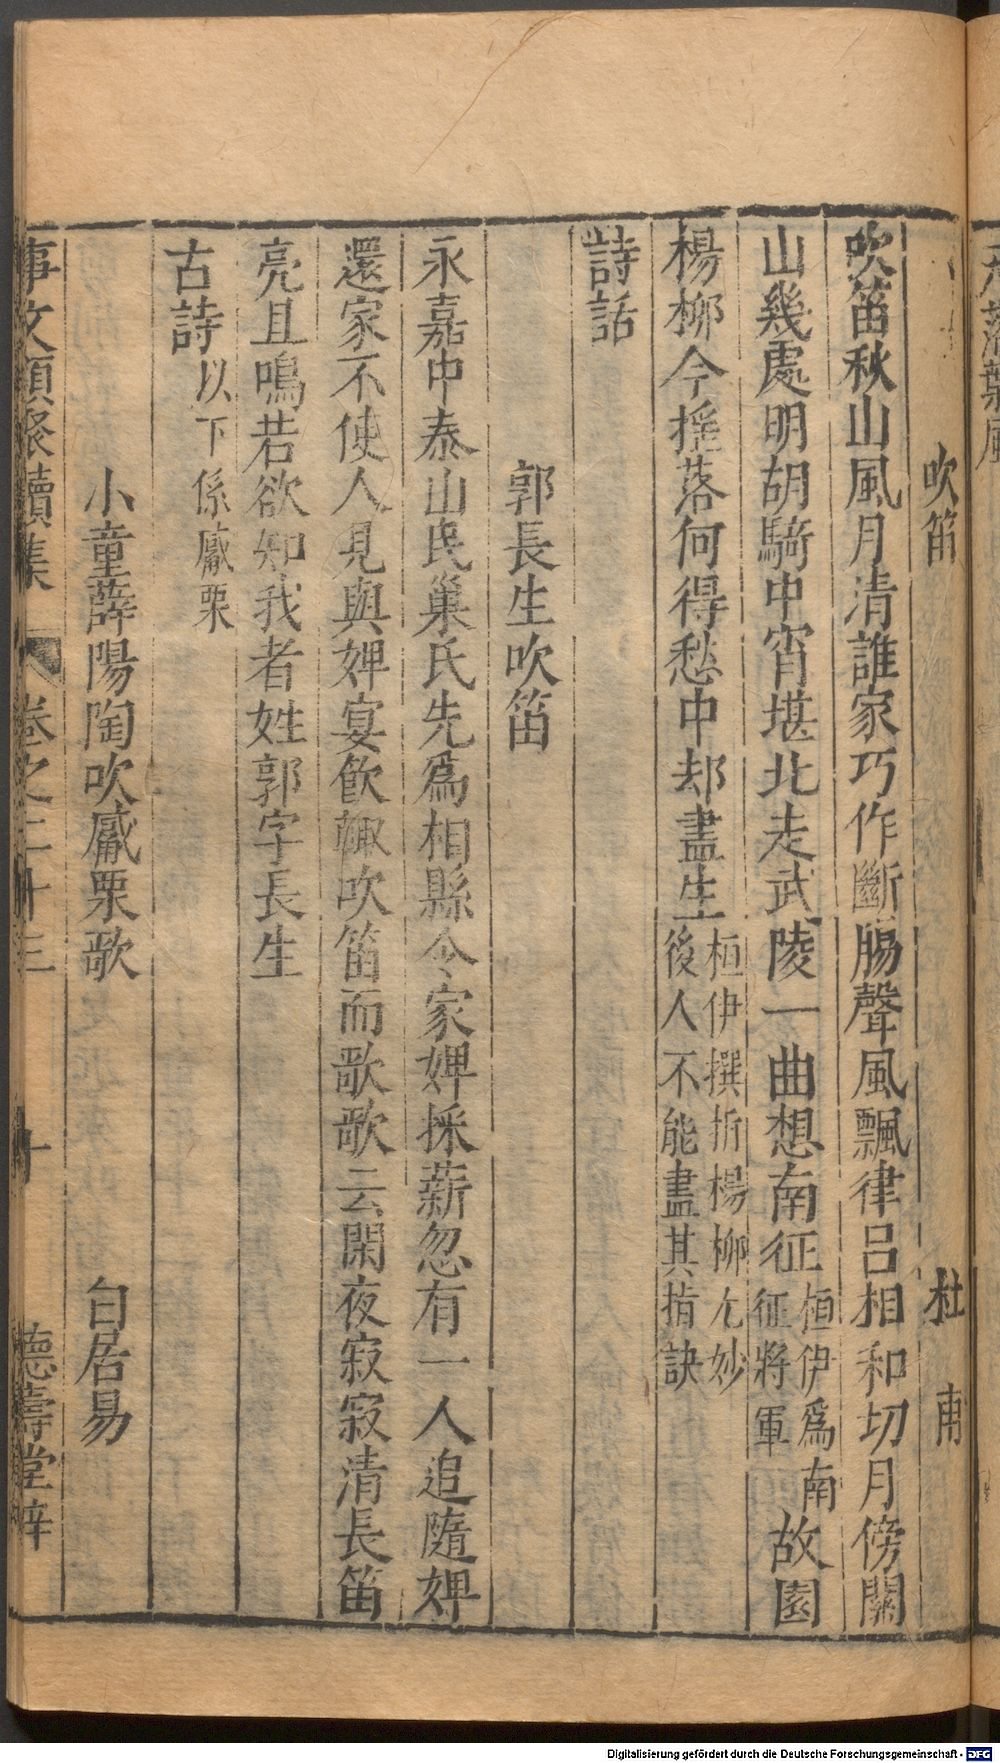 吹笛　杜甫
吹笛秋山風月清誰家巧作斷腸聲風飄律呂相和切月傍關
山幾處明胡騎中宵堪北走武陵一曲想南征桓伊為南征將軍故園
楊柳今摇落何得愁中却盡生桓伊撰折楊柳尤妙後人不能盡其指訣
詩話
郭長生吹笛
永嘉中泰山民巢氏先爲相縣令家婢採薪忽有一人追隨婢
還家不使人見與婢宴飲輙吹笛而歌歌云閑夜寂寂清長笛
亮且鳴若欲知我者姓郭字長生
古詩以下係觱栗
小童薛陽陶吹觱栗歌　白居易
事文類聚續集　卷之二十三　十　德壽堂梓
Digitalisierung gefördert durch die Deutsche Forschungsgemeinschaft - DFG